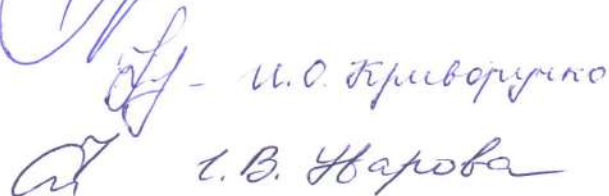 И.О. Криворучко
В. Жарова